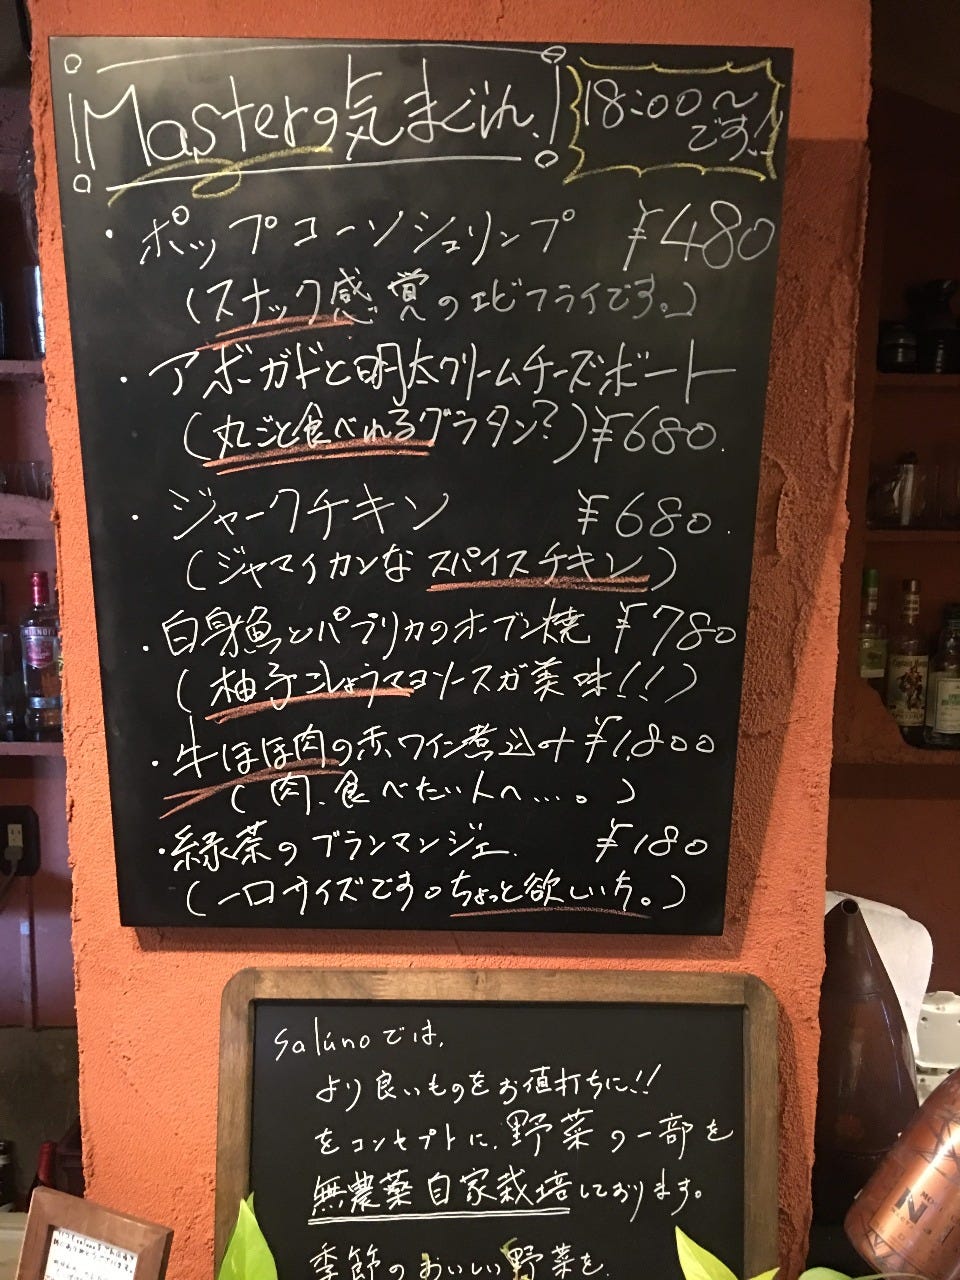 Masterの気まぐれ。
18:00〜です!!
・ポップコーンシュリンプ ¥480
(スナック感覚のエビフライです。)
・アボガドと明太クリームチーズボート
(丸ごと食べれるグラタン?) ¥680.
・ジャークチキン ¥680.
(ジャマイカンなスパイスチキン)
・白身魚とパプリカのオーブン焼 ¥780
(柚子こしょうマヨソースが美味!!)
・牛ほほ肉の赤ワイン煮込み ¥1,800
(肉、食べたい人へ…。)
・緑茶のブランマンジェ. ¥180
(一口サイズです。ちょっと欲しい方。)
salúnoでは、
より良いものをお値打ちに!!
をコンセプトに、野菜の一部を
無農薬自家栽培しております。
季節のおいしい野菜を